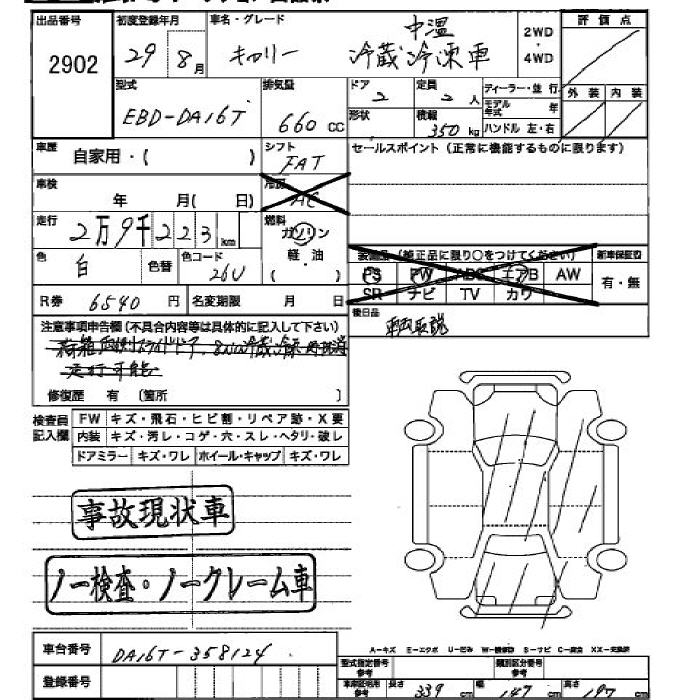 出品番号 初度登録年月 車名・グレード 評価点
2902 29年8月 キャリー 中温 冷蔵冷凍車 2WD・4WD 外装 内装
型式 排気量 ドア 定員 ディーラー・並行
EBD-DA16T 660cc 2 2人 モデル年式 年
形状 積載 350kg ハンドル 左・右
車歴 自家用・( ) シフト FAT セールスポイント(正常に機能するものに限ります)
車検 年 月( 日) 冷房 AC
走行 2万9千223km 燃料 ガソリン 軽・油 ( )
装備品(純正品に限り○をつけてください) 新車保証書
色 白 色替 色コード 26U PS PW ABS エアB AW 有・無
SR ナビ TV カワ
R券 6540円 名変期限 月 日 後日品
注意事項申告欄(不具合内容等は具体的に記入して下さい)
走行可能
修復歴 有(箇所 )
検査員記入欄 FW キズ・飛石・ヒビ割・リペア跡・X要
内装 キズ・汚レ・コゲ・穴・スレ・ヘタリ・破レ
ドアミラー キズ・ワレ ホイール・キャップ キズ・ワレ
事故現状車
ノー検査・ノークレーム車
A-キズ E-エクボ U-凹み
車台番号 DA16T-358124 型式指定番号 参考 類別区分番号 参考
登録番号 車庫証明用 参考 長さ 339cm 幅 147cm 高さ 197cm